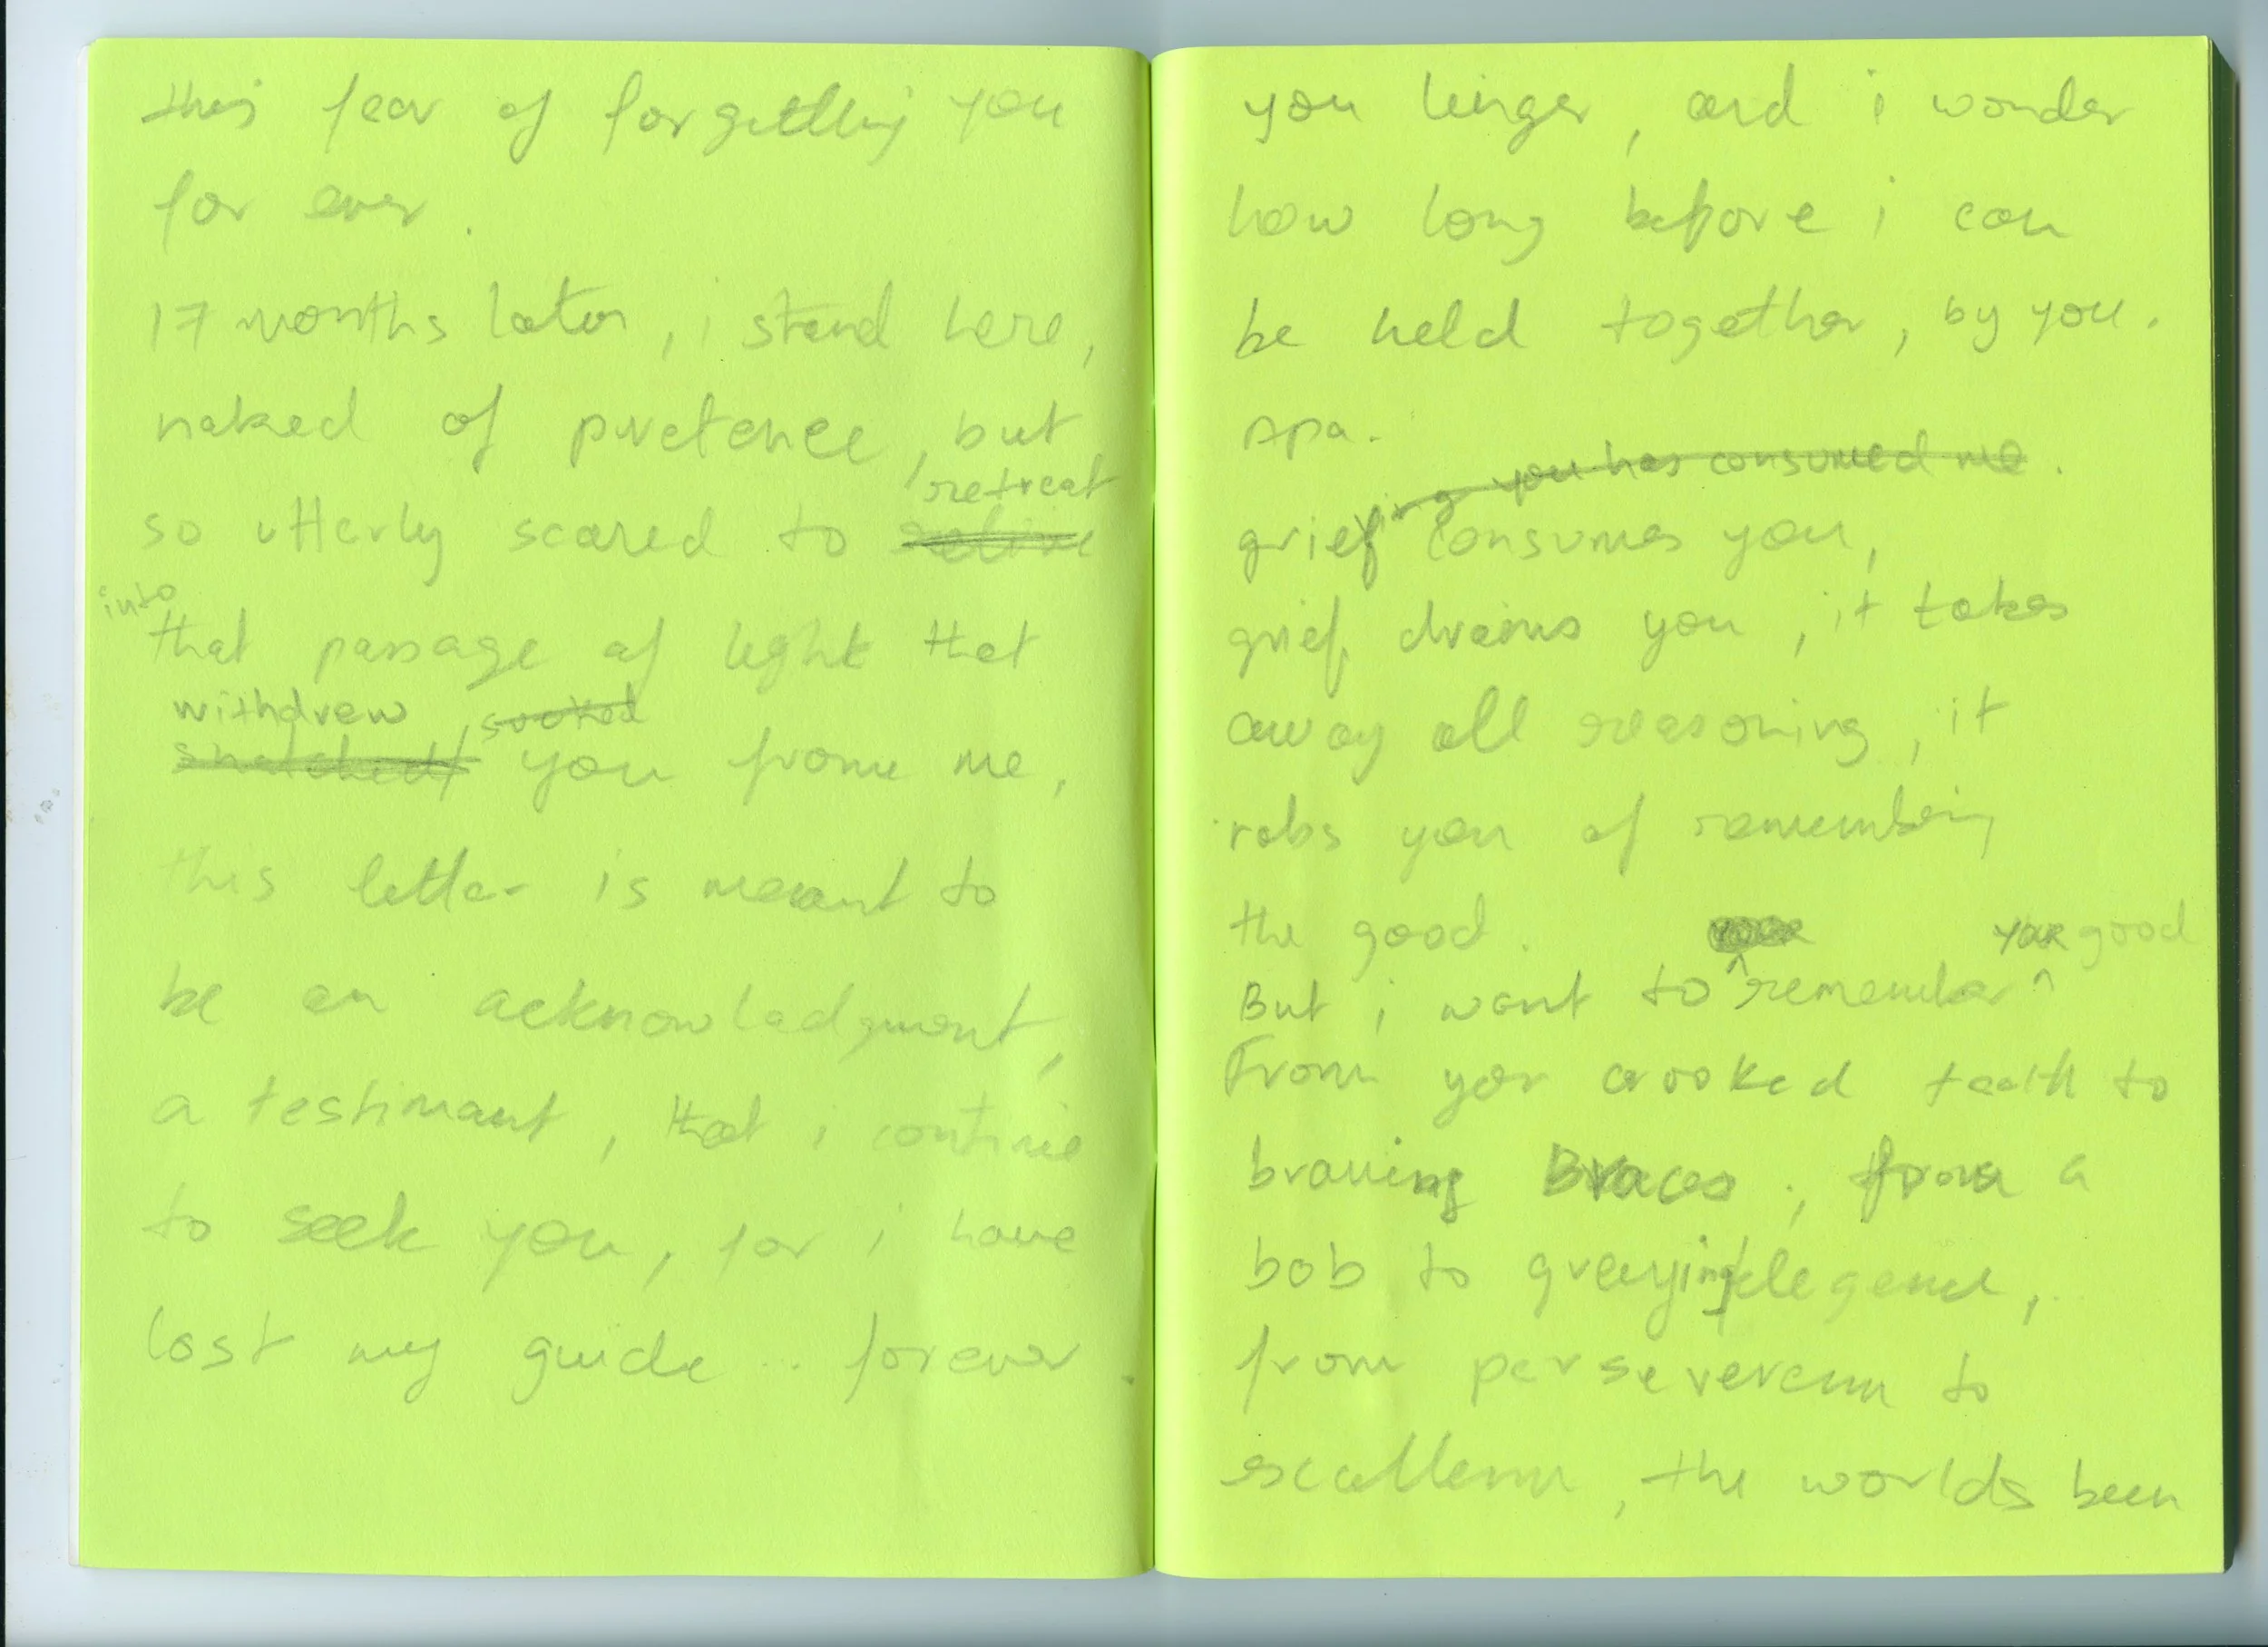 this fear of forgetting you
for ever.
17 months later, i stand here,
naked of pretence, but
retreat
so utterly scared to
into
that passage of light that
withdrew sooked
snatched you from me,
this letter is meant to
be an acknowledgment,
a testimant, that i continue
to seek you, for i have
lost my guide .. forever.
you linger, and i wonder
how long before i can
be held together, by you.
Apa.
ing you has consumed me.
grief consumes you,
grief drains you, it takes
away all reasoning, it
robs you of remembering
the good.
your good
But i want to remember
From your crooked teeth to
braving Braces, from a
bob to greying elegance,
from perseverance to
excellence, the worlds been